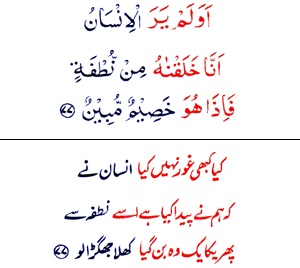 اَوَلَمْ يَرَ الْاِنْسَانُ
اَنَّا خَلَقْنٰهُ مِنْ نُّطْفَةٍ
فَاِذَا هُوَ خَصِيْمٌ مُّبِيْنٌ ۷۷
کیا کبھی غور نہیں کیا انسان نے
کہ ہم نے پیدا کیا ہے اسے نطفہ سے
پھر یکایک وہ بن گیا کھلا جھگڑالو ۷۷